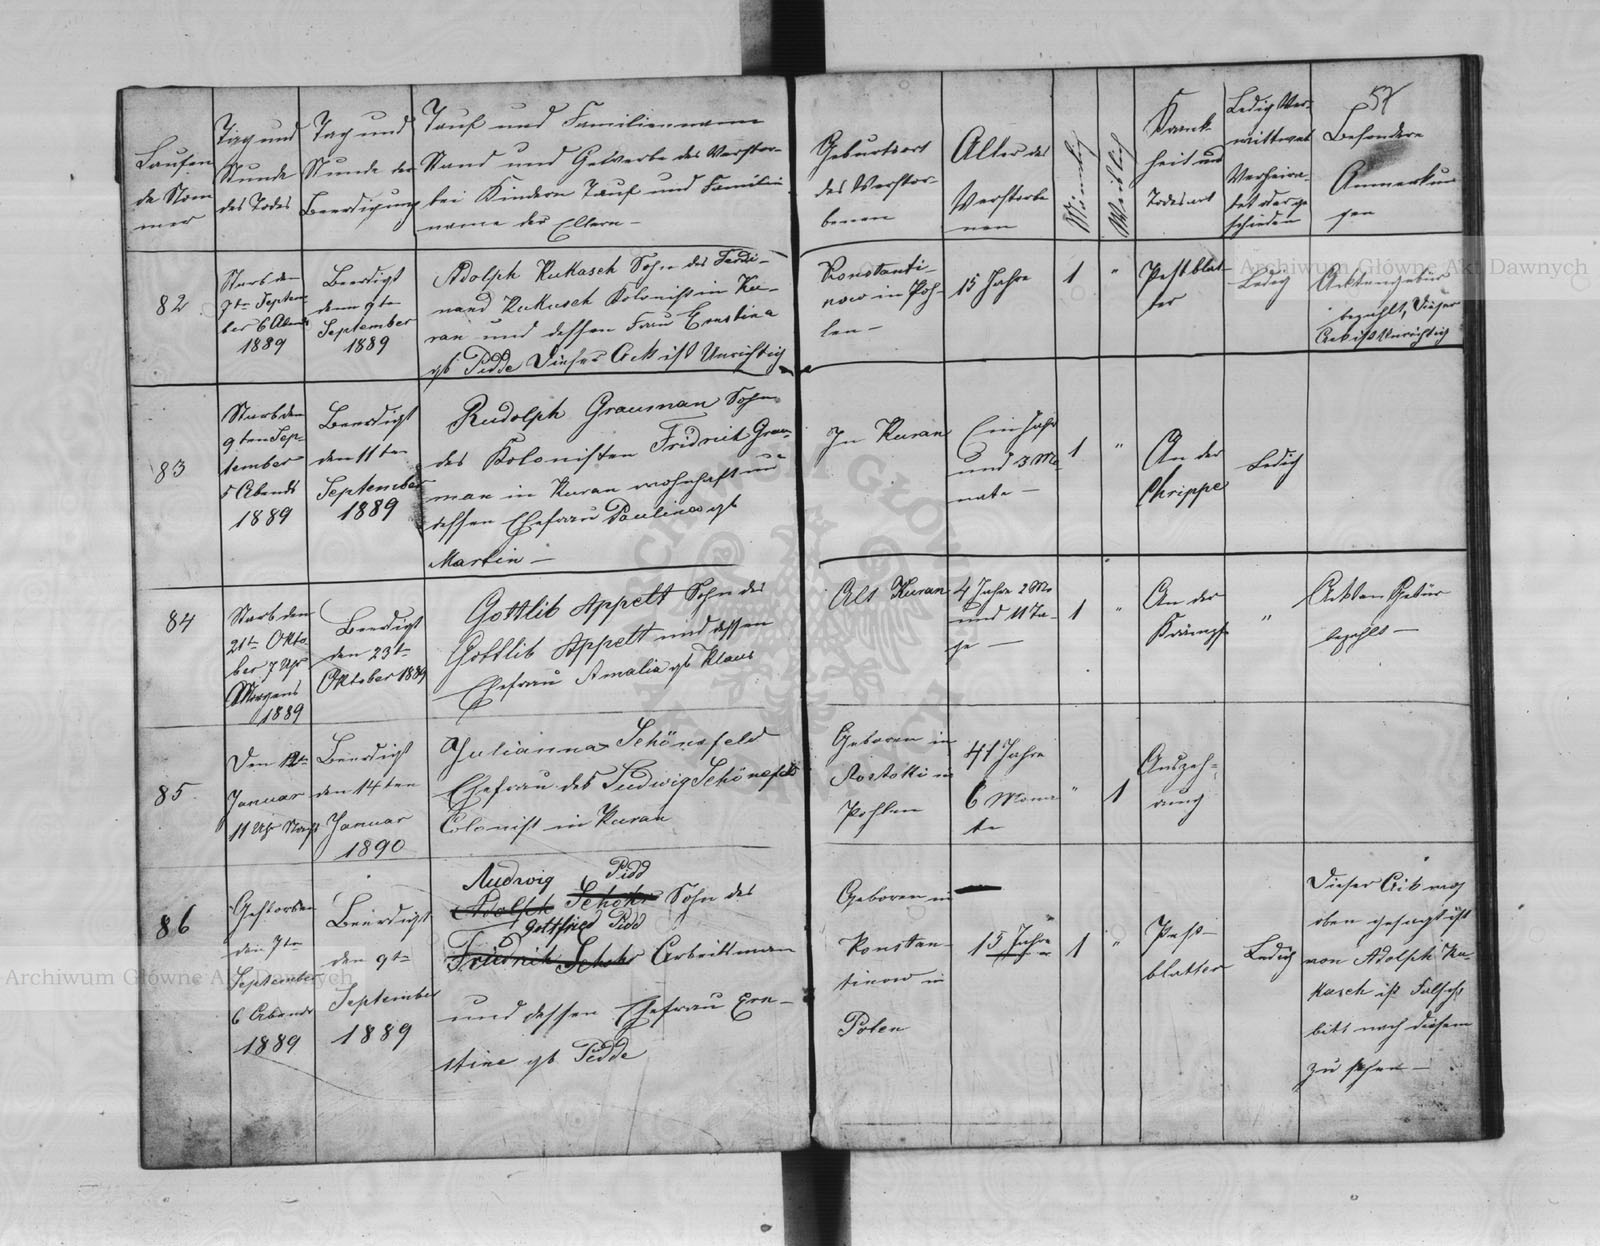 57
Laufen
de Num
mer
Tag und
Stunde
des Todes
Tag und
Stunde der
Beerdigung
Tauf und Familienname
Stand und Gewerbe des Verstor-
bei Kindern Tauf und Familien
name der Eltern —
Geburtsort
des Verstor-
benen
Alter des
Verstorbe
nen
Männlich
Weiblich
Krank
heit und
Todesart
Ledig Ver-
wittwet
Verheira-
tet oder ge
schieden
Besondere
Anmerkun
gen
82
Starb den
7ten Septem-
ber 6 Abends
1889
Beerdigt
denn 9ten
September
1889
Adolph Kukasch Sohn des Ferdi-
nand Kukasch Kolonist in Ku-
ran und dessen Frau Ernstina
gb Pidde Dieser Ack ist Unrichtig
Konstanti-
now in Poh-
len —
15 Jahre
1
"
Pestblat-
ter
Ledig
Acktengebür
bezahlt, Dieser
Ack ist Unrichtig
83
Starb den
9ten Sep-
tember
5 Abends
1889
Beerdigt
den 11ten
September
1889
Rudolph Grauman Sohn
des Kolonisten Fridrich Grau-
man in Kuran wohnhaft und
dessen Ehefrau Paulina gb
Martin —
In Kuran
Ein Jahr
und 3 Mo
nate —
1
"
An der
Chrippe
Ledig
84
Starb den
21ten Okto
ber 7 Uhr
Morgens
1889
Beerdigt
den 23ten
Oktober 1889
Gottlib Appelt Sohn des
Gottlib Appelt und dessen
Ehefrau Amalia gb Klaus
Alt Kuran
4 Jahre 2 Mo
und 11 Ta-
ge —
1
"
An der
Krämpfe
"
Ackten Gebür
bezahlt —
85
Den 12ten
Januar
11 Uhr Nachts
Beerdigt
den 14ten
Januar
1890
Julianna Schönsfeld
Ehefrau des Ludwig Schönsfeld
Colonist in Kuran
Geboren in
Pohlen
41 Jahre
6 Mona
te
"
1
Auszeh-
rung
86
Gestorben
den 7ten
September
6 Abends
1889
Beerdigt
den 9ten
September
1889
Ludwig Pidd
Adolph Schoks Sohn des
Gottfried Pidd
Fridrich Schoks Arbeitman
und dessen Ehefrau Ern-
stine gb Pidde
Geboren in
Konstan-
tinow in
Polen
15 Jahre
1
"
Pest-
blatter
Ledig
Dieser Ack was
oben gesagt ist
von Adolph Ku-
kasch ist Falsch
bitt nach diesem
zu sehen —
Archiwum Główne Akt Dawnych
Archiwum Główne Akt Dawnych